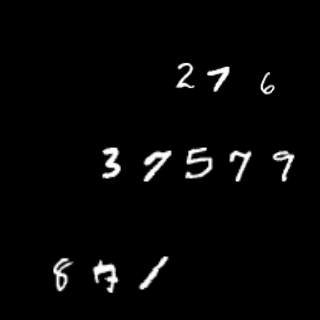 2 7 6
3 7 5 7 9
8 7 1